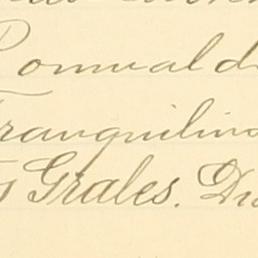 Romuald
Tranquilin
Grales. Du